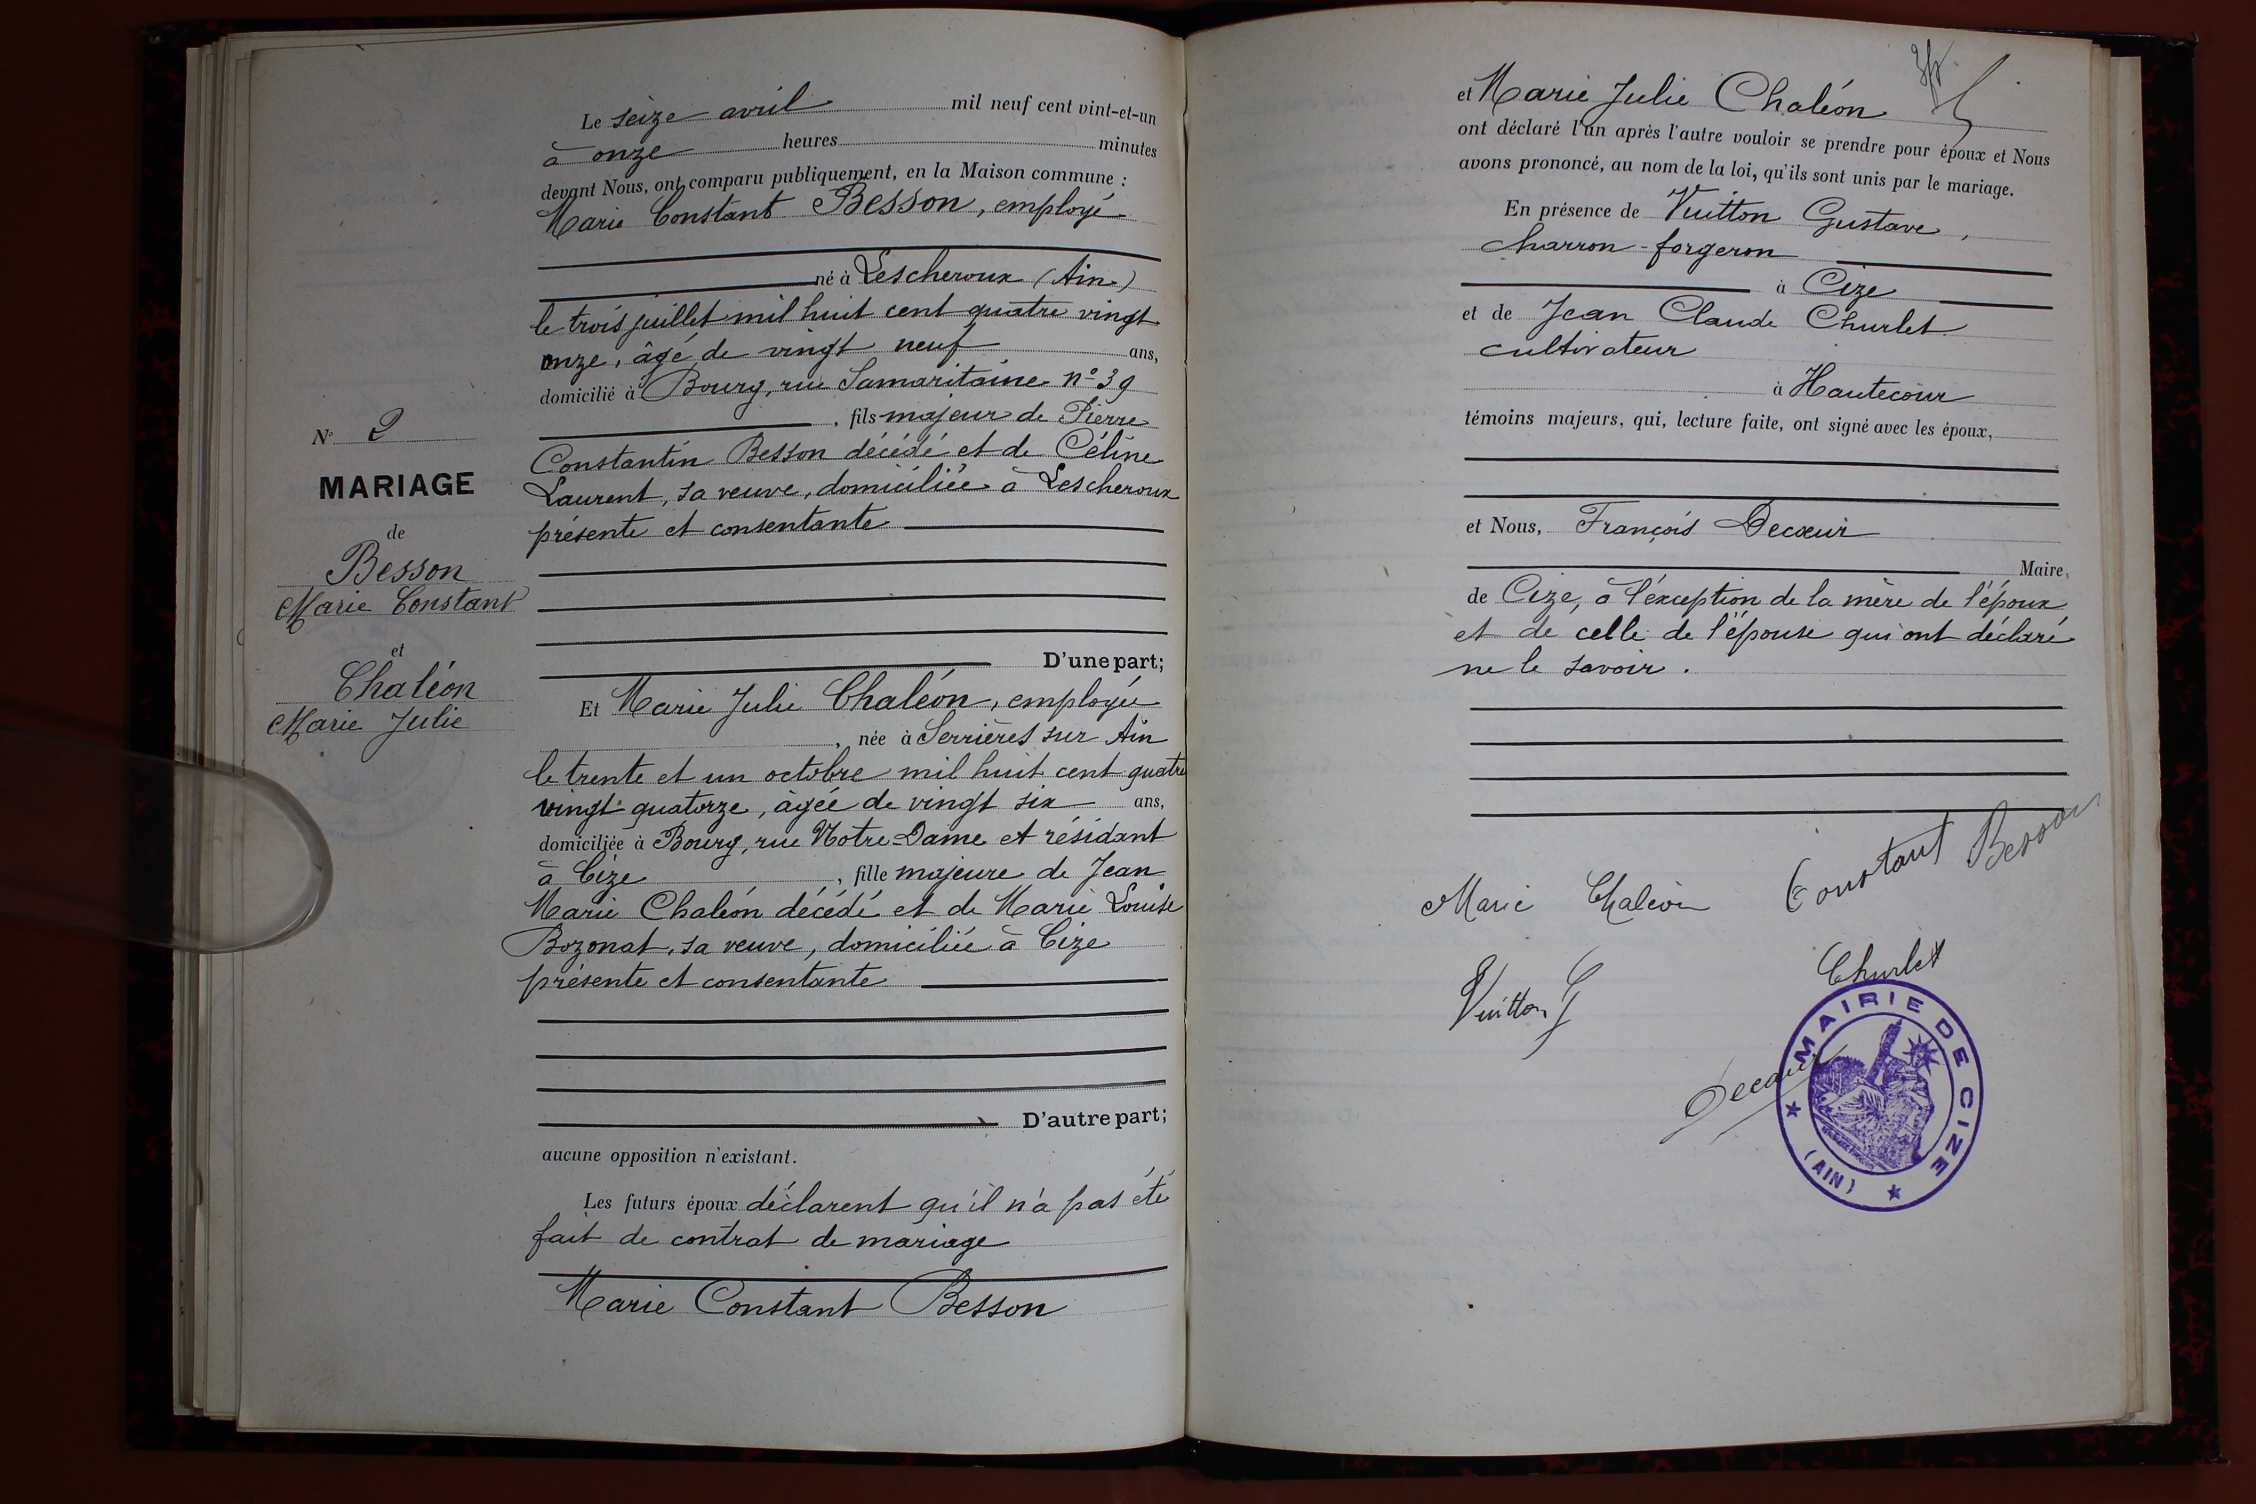 N° 2
MARIAGE
de
Besson
Marie Constant
et
Chaléon
Marie Julie
Le seize avril mil neuf cent vint-et-un
à onze heures minutes
devant Nous, ont comparu publiquement, en la Maison commune :
Marie Constant Besson, employé
né à Lescheroux (Ain)
le trois juillet mil huit cent quatre vingt
onze, âgé de vingt neuf ans,
domicilié à Bourg, rue Samaritaine n° 39
, fils majeur de Pierre
Constantin Besson décédé et de Céline
Laurent, sa veuve, domiciliée à Lescheroux
présente et consentante
D'une part;
Et Marie Julie Chaléon, employée
, née à Serrières sur Ain
le trente et un octobre mil huit cent quatre
vingt quatorze, âgée de vingt six ans,
domiciliée à Bourg, rue Notre-Dame et résidant
à Cize, fille majeure de Jean
Marie Chaléon décédé et de Marie Louise
Bozonat, sa veuve, domiciliée à Cize
présente et consentante
D'autre part;
aucune opposition n'existant.
Les futurs époux déclarent qu'il n'a pas été
fait de contrat de mariage
Marie Constant Besson
et Marie Julie Chaléon
ont déclaré l'un après l'autre vouloir se prendre pour époux et Nous
avons prononcé, au nom de la loi, qu'ils sont unis par le mariage.
En présence de Vuitton Gustave,
charron-forgeron
à Cize
et de Jean Claude Churlet
cultivateur
à Hautecour
témoins majeurs, qui, lecture faite, ont signé avec les époux,
et Nous, François Decœur
Maire
de Cize, à l'éxception de la mère de l'époux
et de celle de l'épouse qui ont déclaré
ne le savoir.
Marie Chaléon Constant Besson
Vuitton G Churlet
Decœur
MAIRIE DE CIZE
(AIN)